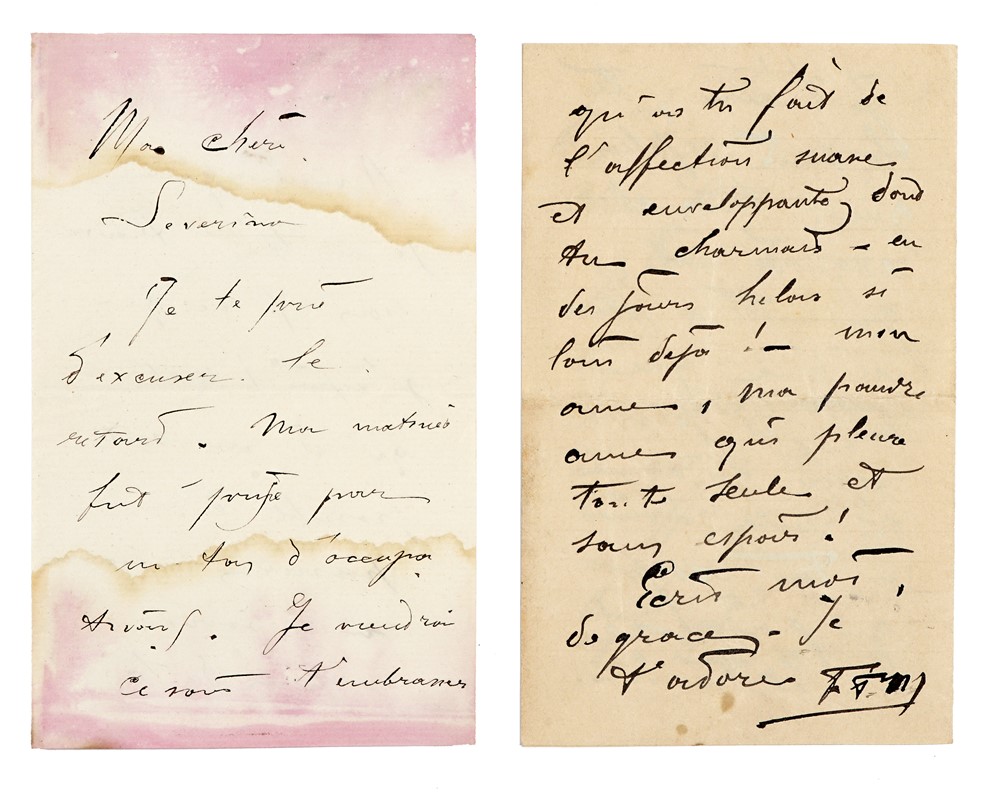 Ma chère
Severine
Je te prie
d'excuser le
retard. Ma matinée
fut prise par
un tas d'occupa
tions. Je viendrai
ce soir t'embrasser
qu'as tu fait de
l'affection suave
et enveloppante dont
tu charmais - en
des jours hélas si
loin déjà ! - mon
ame, ma pauvre
ame qui pleure
toute seule et
sans espoir !
Ecris moi,
de grace - Je
t'adore